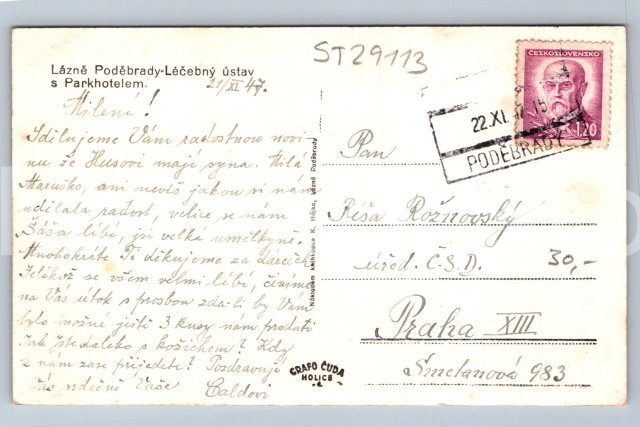 ST29113
Lázně Poděbrady-Léčebný ústav
s Parkhotelem.
21/XI 47.
Milení!
Sdělujeme Vám radostnou novi
nu že Husovi mají syna. Milá
Maruško, ani nevíš jakou si nám
udělala radost, velice se nám
Šáša líbí, jsi velká umělkyně.
Mnohokráte Ti děkujeme za dáreček
Jelikož se všem velmi líbí, činíme
na Vás útok s prosbou zda-li by Vám
bylo možné ještě 3 kusy nám prodati
Jak jste daleko s kožichem? Kdy
k nám zase přijedete? Pozdravují
Vás srdečně Vaše
Caldovi
Nákladem knihkupce K. Hojno, Lázně Poděbrady
GRAFO ČUDA
HOLICE
ČESKOSLOVENSKO
1.20
22.XI. 47 15
PODĚBRADY
Pan
Ríša Rožnovský
úřed. Č.S.D.
30,-
Praha XIII
Smetanová 983